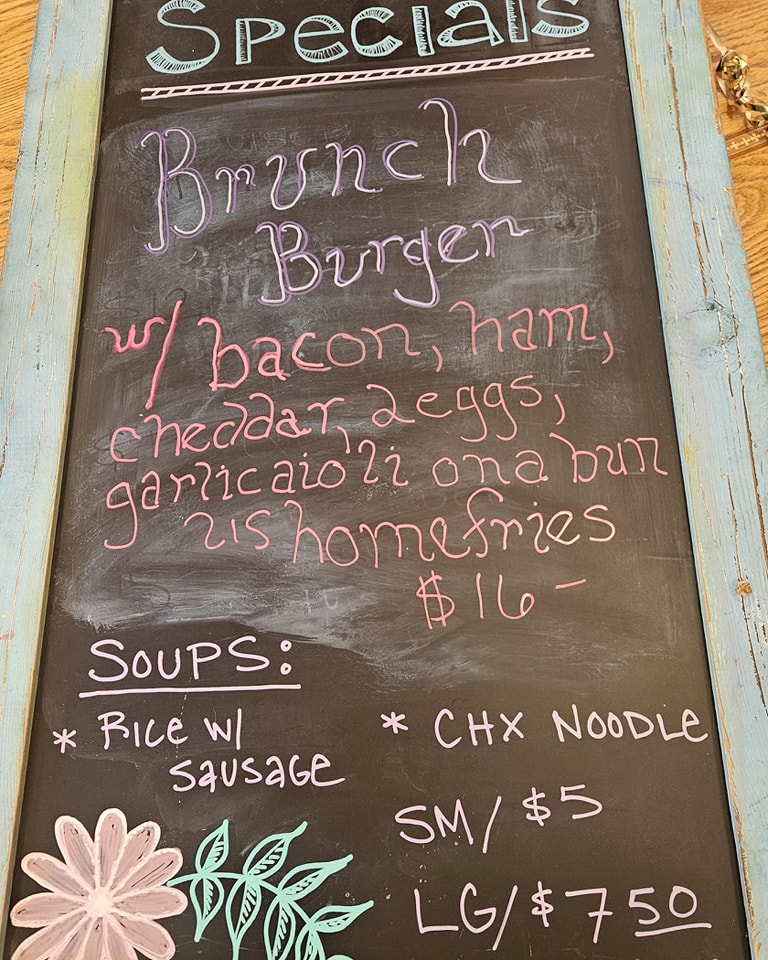 Specials
Brunch
Burger
w/ bacon, ham,
cheddar, 2 eggs,
garlic aioli on a bun
w/s homefries
$16 -
SOUPS:
* RICE W/ SAUSAGE
* CHX NOODLE
SM/ $5
LG/ $7 50